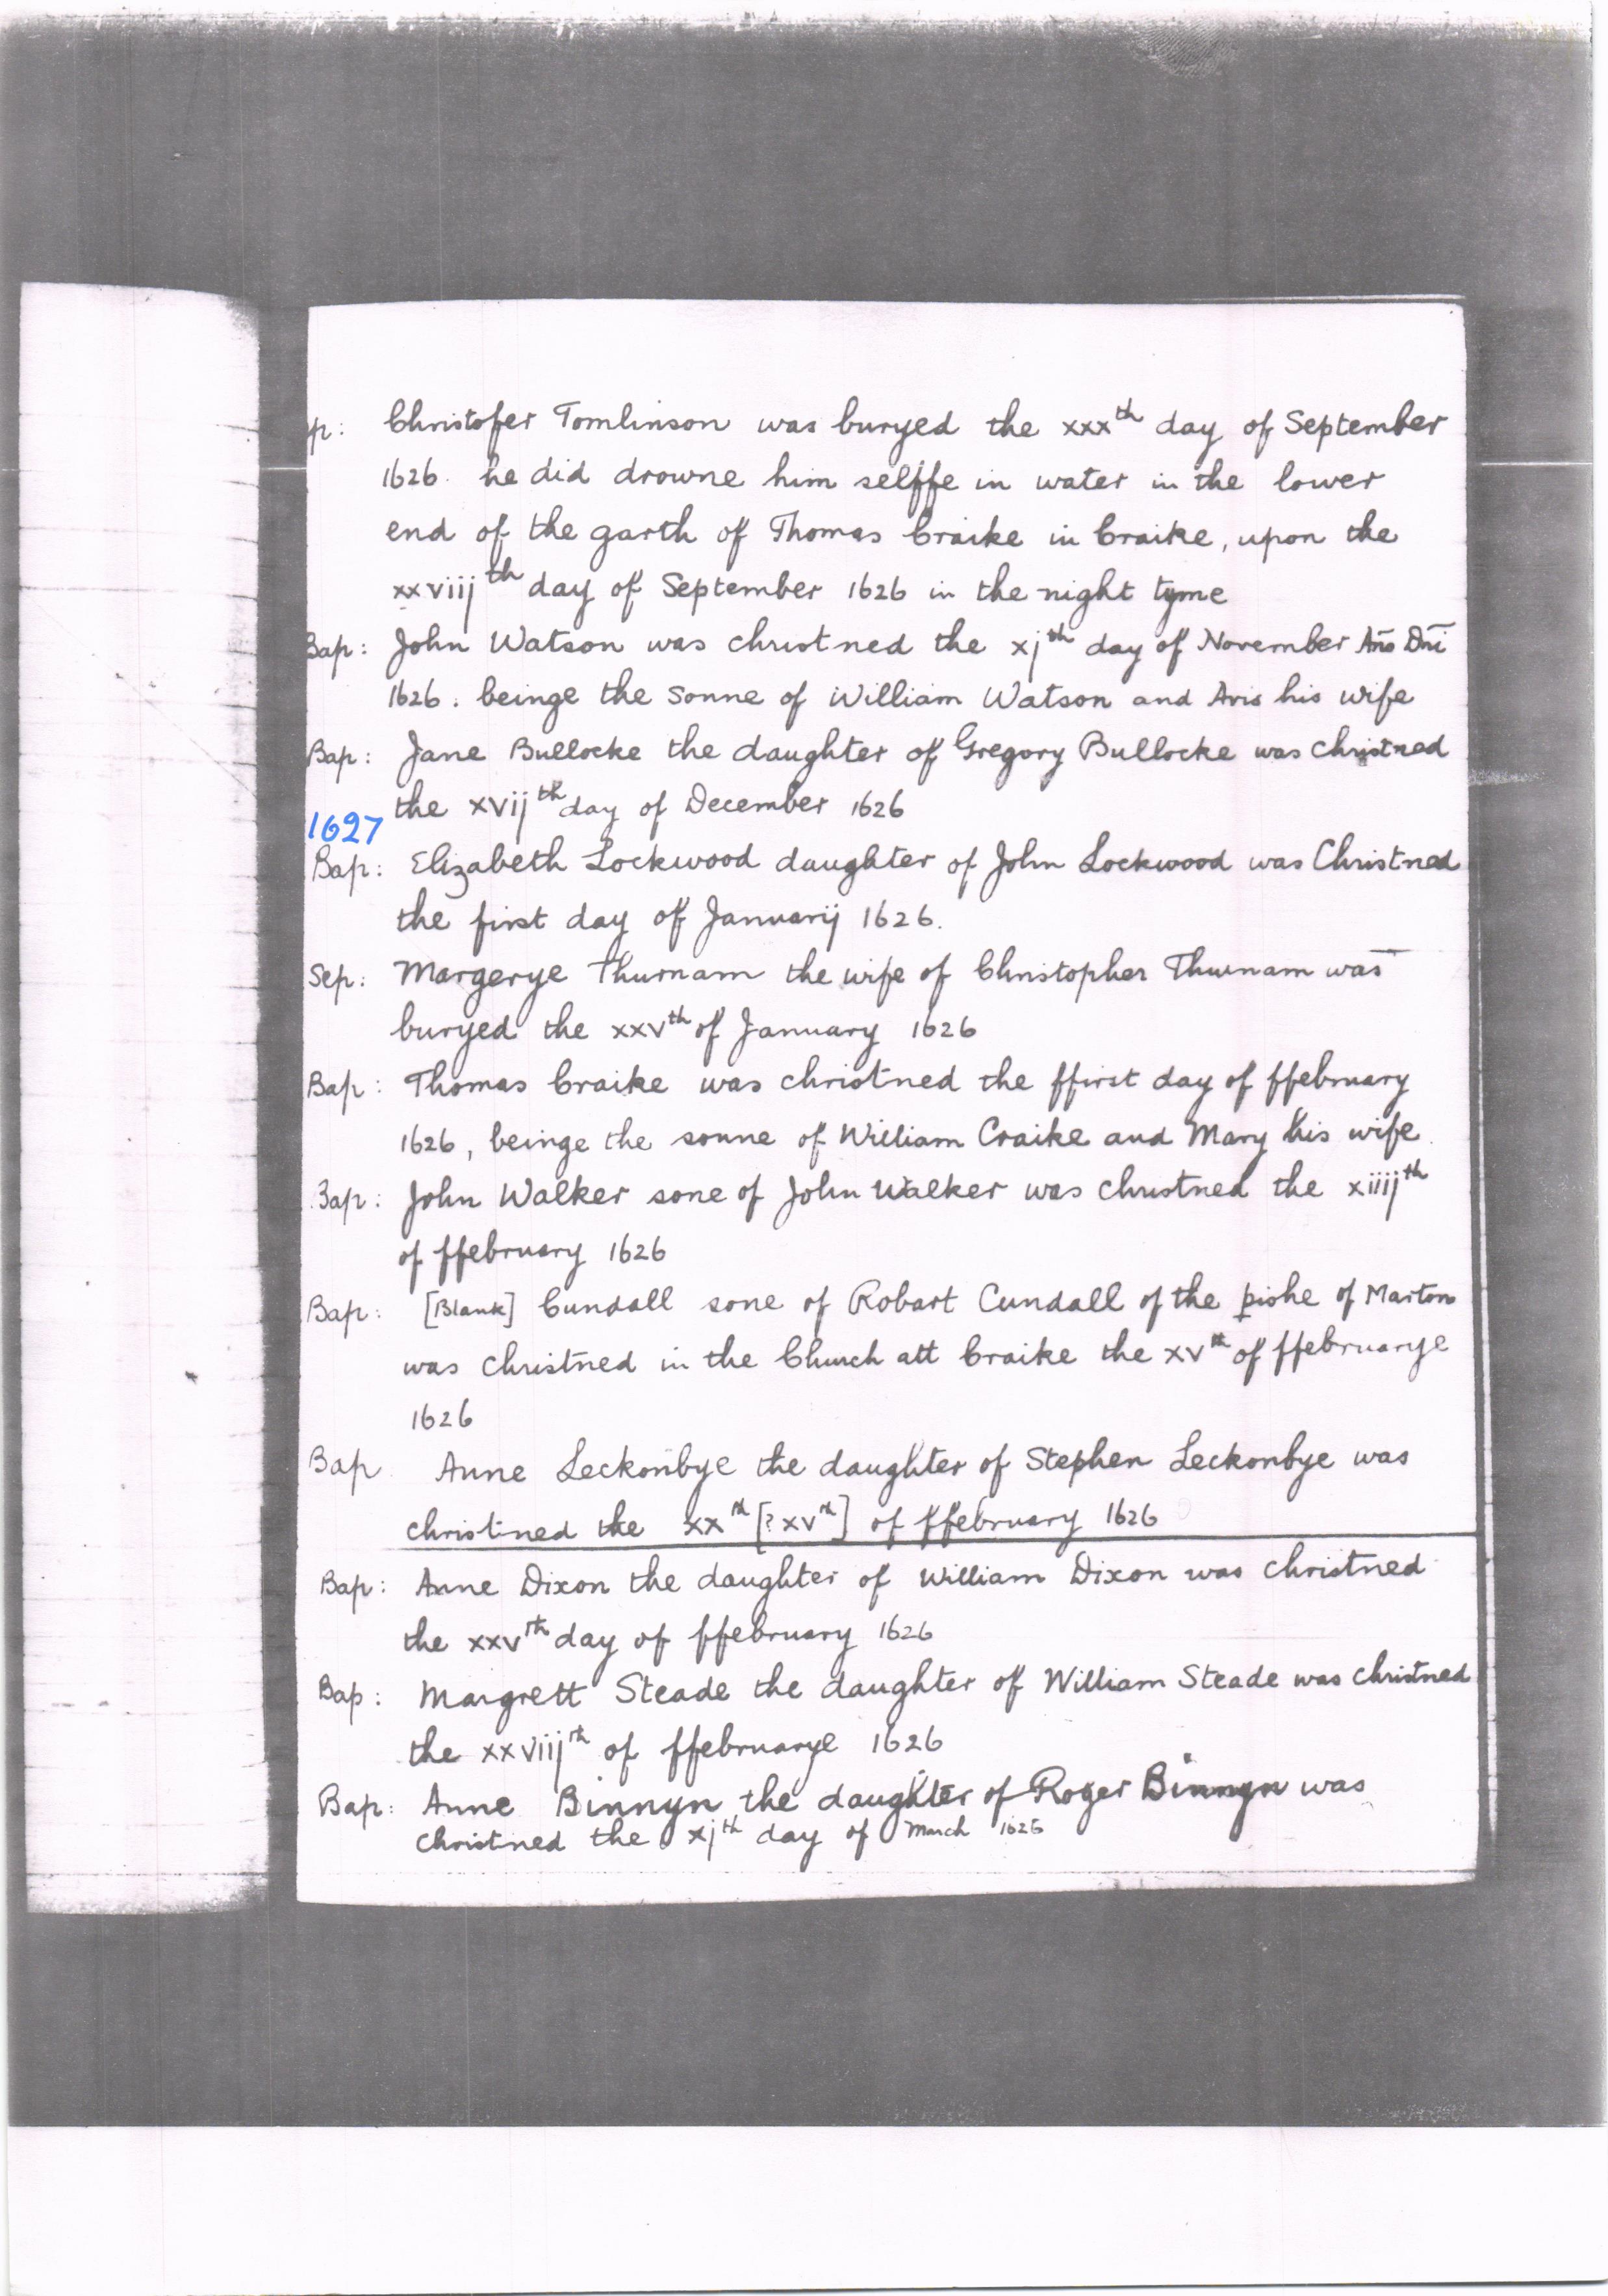 p: Christofer Tomlinson was buryed the xxxth day of September
1626. he did drowne him selffe in water in the lower
end of the garth of Thomas Craike in Craike, upon the
xxviijth day of September 1626 in the night tyme
Bap: John Watson was christned the xjth day of November Ano Dni
1626. beinge the sonne of William Watson and Avis his wife
Bap: Jane Bullocke the daughter of Gregory Bullocke was christned
the xvijth day of December 1626
1627
Bap: Elizabeth Lockwood daughter of John Lockwood was Christned
the first day of Januarij 1626.
Sep: Margerye Thurnam the wife of Christopher Thurnam was
buryed the xxvth of January 1626
Bap: Thomas Craike was christned the ffirst day of ffebruary
1626, beinge the sonne of William Craike and Mary his wife.
Bap: John Walker sone of John Walker was christned the xiiijth
of ffebruary 1626
Bap: [Blank] Cundall sone of Robart Cundall of the pishe of Marton
was christned in the Church att Craike the xvth of ffebruarye
1626
Bap Anne Leckonbye the daughter of Stephen Leckonbye was
christined the xxth [?xvth] of ffebruary 1626
Bap: Anne Dixon the daughter of William Dixon was christned
the xxvth day of ffebruary 1626
Bap: Margrett Steade the daughter of William Steade was christned
the xxviijth of ffebruarye 1626
Bap: Anne Binnyn the daughter of Roger Binnyn was
christned the xjth day of March 1626